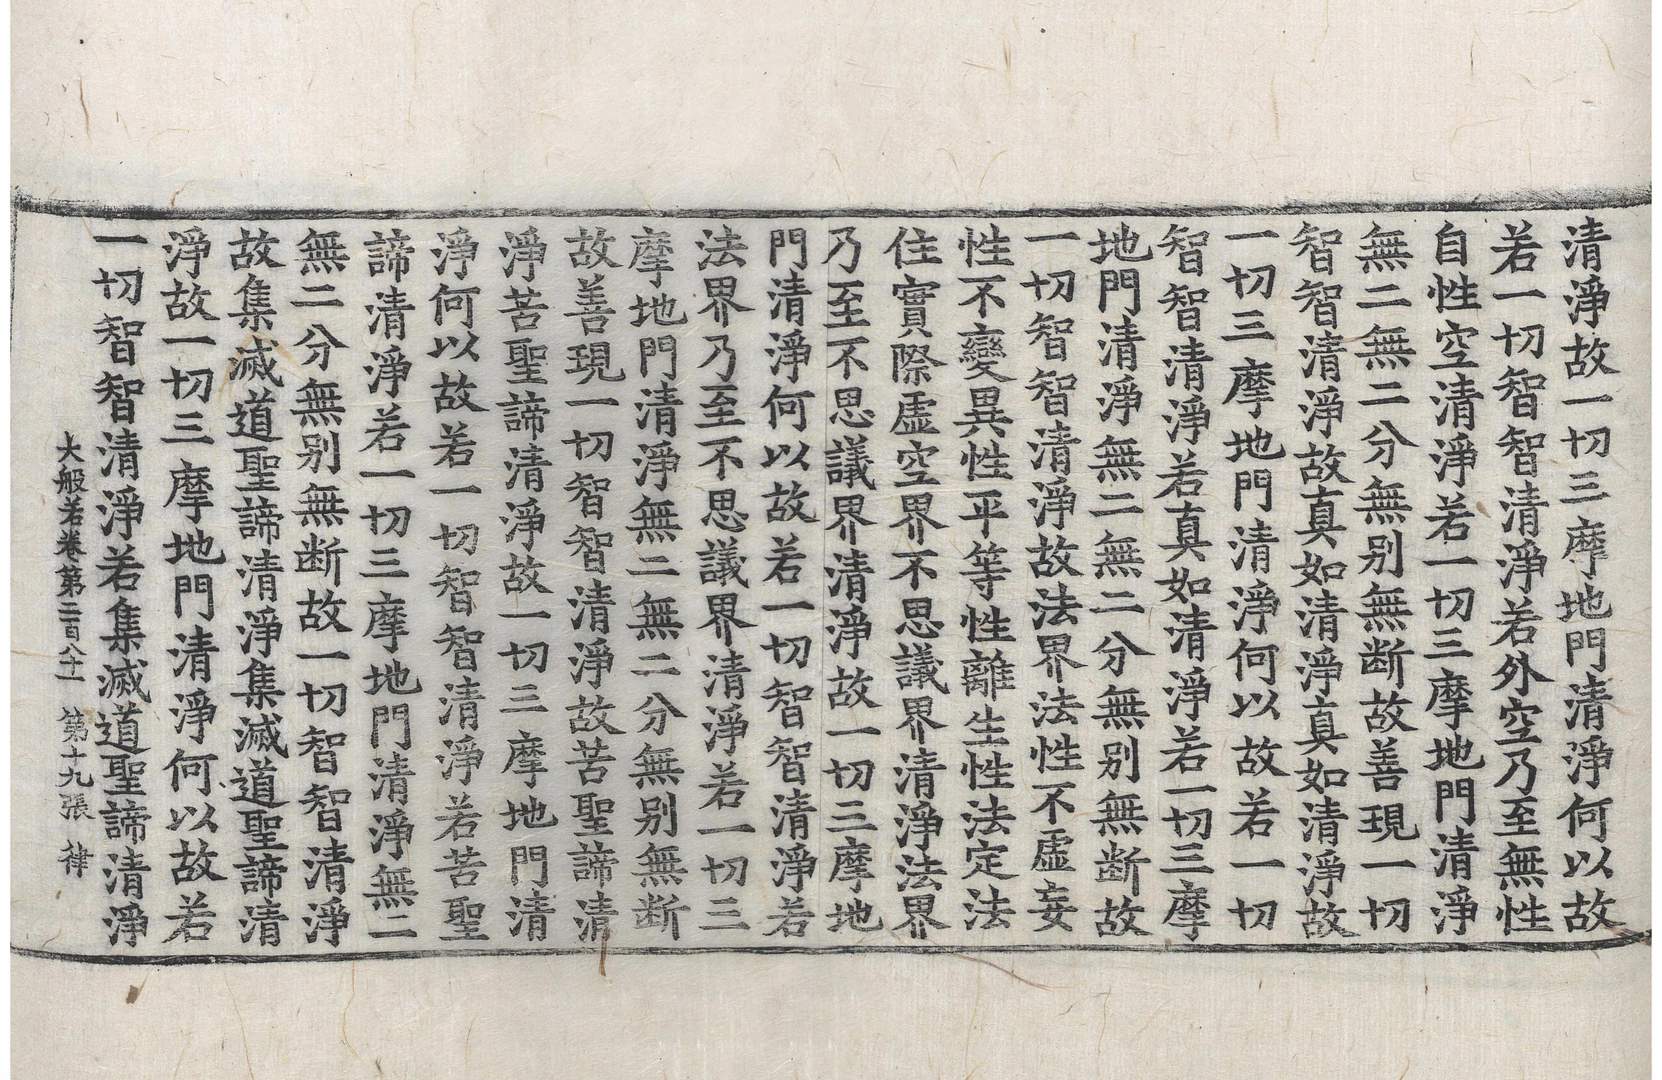 清淨故一切三摩地門清淨何以故
若一切智智清淨若外空乃至無性
自性空清淨若一切三摩地門清淨
無二無二分無别無断故善現一切
智智清淨故真如清淨真如清淨故
一切三摩地門清淨何以故若一切
智智清淨若真如清淨若一切三摩
地門清淨無二無二分無别無断故
一切智智清淨故法界法性不虛妄
性不變異性平等性離生性法定法
住實際虛空界不思議界清淨法界
乃至不思議界清淨故一切三摩地
門清淨何以故若一切智智清淨若
法界乃至不思議界清淨若一切三
摩地門清淨無二無二分無别無断
故善現一切智智清淨故苦聖諦清
淨苦聖諦清淨故一切三摩地門清
淨何以故若一切智智清淨若苦聖
諦清淨若一切三摩地門清淨無二
無二分無别無断故一切智智清淨
故集滅道聖諦清淨集滅道聖諦清
淨故一切三摩地門清淨何以故若
一切智智清淨若集滅道聖諦清淨
大般若卷第二百八十一 第十九張 律